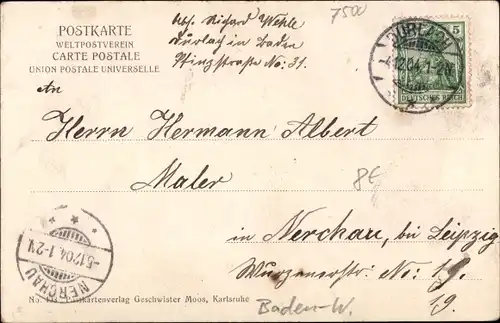 POSTKARTE
WELTPOSTVEREIN
CARTE POSTALE
UNION POSTALE UNIVERSELLE
Abs. Richard Wehle
Durlach in Baden
No: 31.
7500
5
DEUTSCHES REICH
DURLACH
4.12.04. 1-2N.
An
Herrn Hermann Albert
Maler
8€
in Nerchau, bei Leipzig
Wurzenerstr. No: 19.
19.
NERCHAU
-5.12.04. 1-2N.
Kunstkartenverlag Geschwister Moos, Karlsruhe
Baden-W.